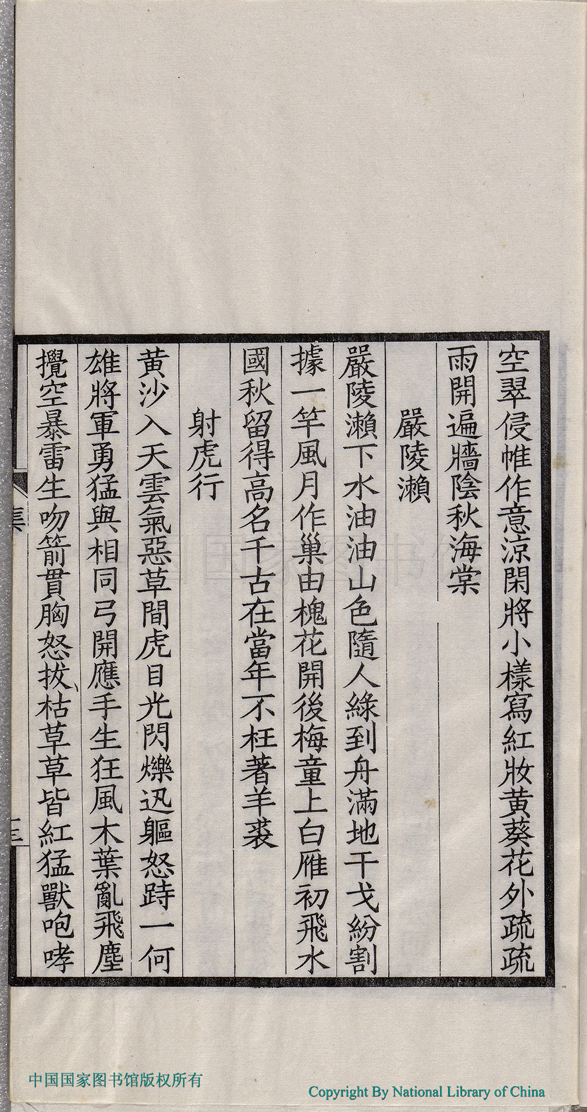 空翠侵帷作意涼閑將小樣寫紅妝黃葵花外疏疏
雨開遍牆陰秋海棠
嚴陵瀨
嚴陵瀨下水油油山色隨人綠到舟滿地干戈紛割
據一竿風月作巢由槐花開後梅童上白雁初飛水
國秋留得高名千古在當年不枉著羊裘
射虎行
黃沙入天雲氣惡草間虎目光閃爍迅軀怒跱一何
雄將軍勇猛與相同弓開應手生狂風木葉亂飛塵
攪空暴雷生吻箭貫胸怒拔枯草草皆紅猛獸咆哮
集
中国国家图书馆版权所有
Copyright By National Library of China